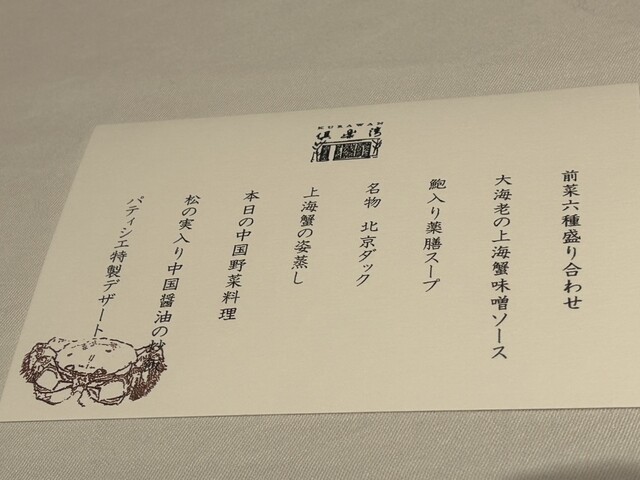 KURAWAN
倶楽湾
前菜六種盛り合わせ
大海老の上海蟹味噌ソース
鮑入り薬膳スープ
名物 北京ダック
上海蟹の姿蒸し
本日の中国野菜料理
松の実入り中国醤油の炒飯
パティシエ特製デザート